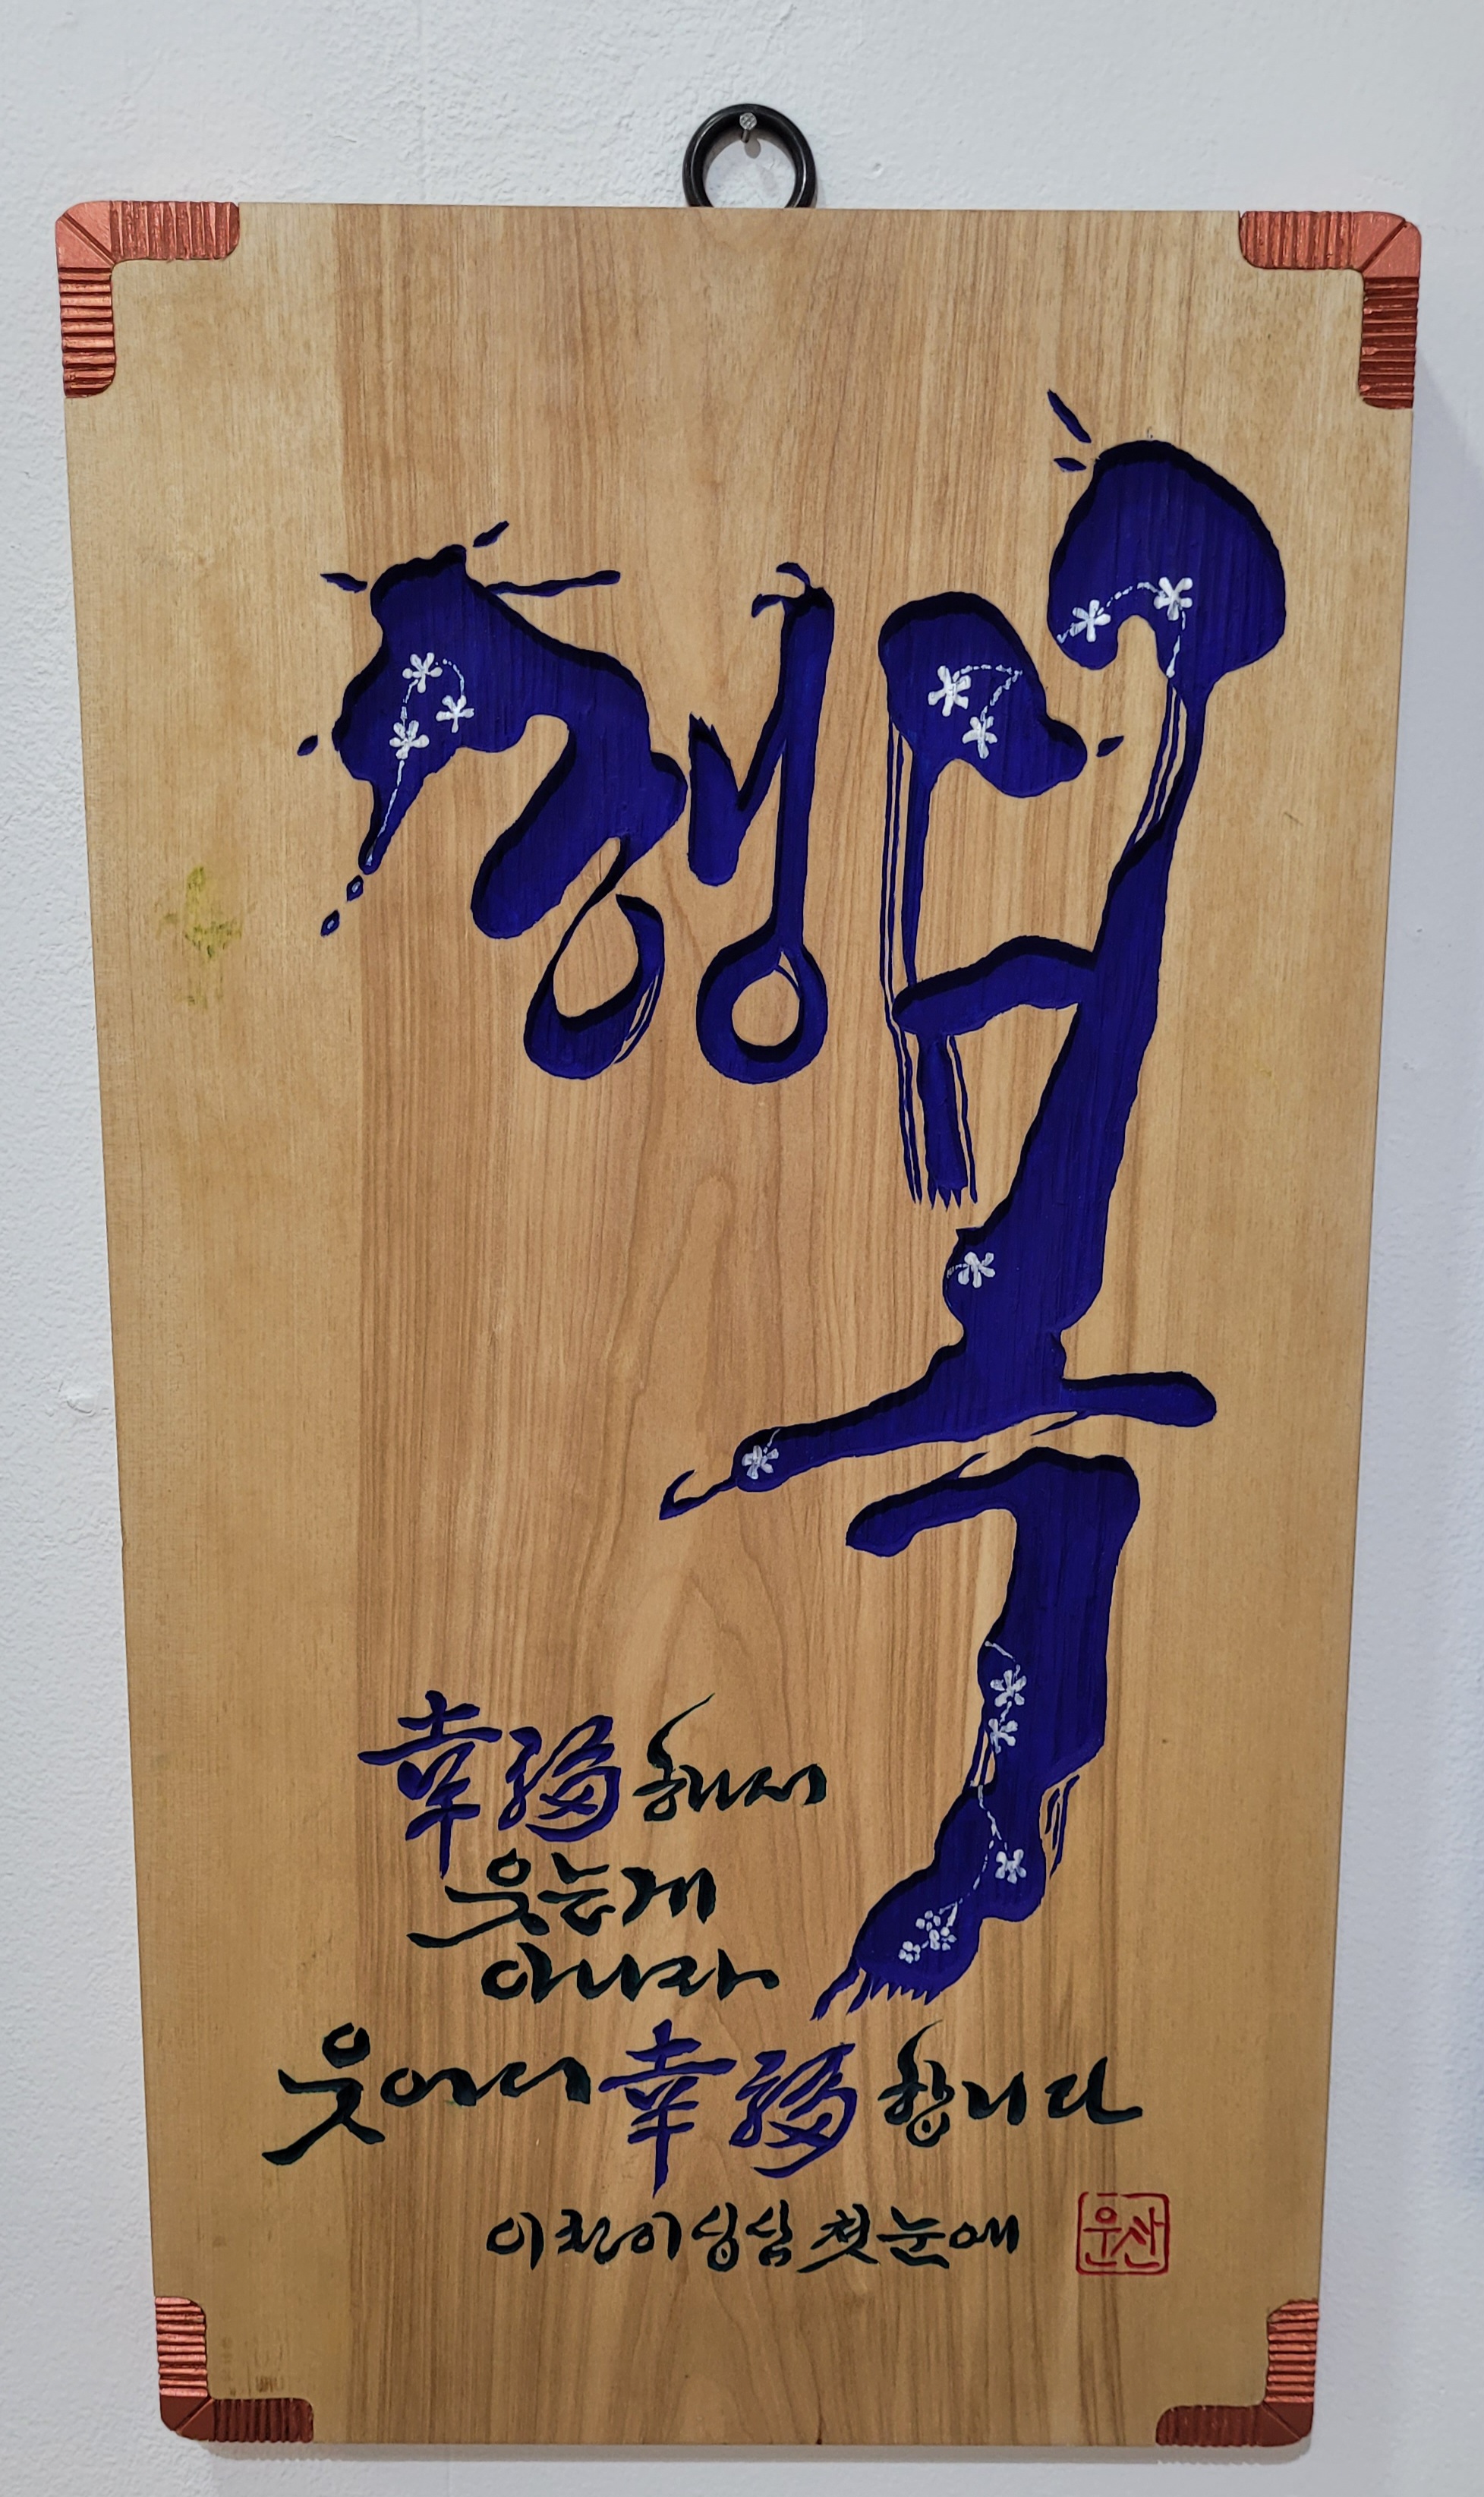 행복
幸福해서
웃는게
아니라
웃어서 幸福합니다
이찬이싱싱 첫눈에
운산